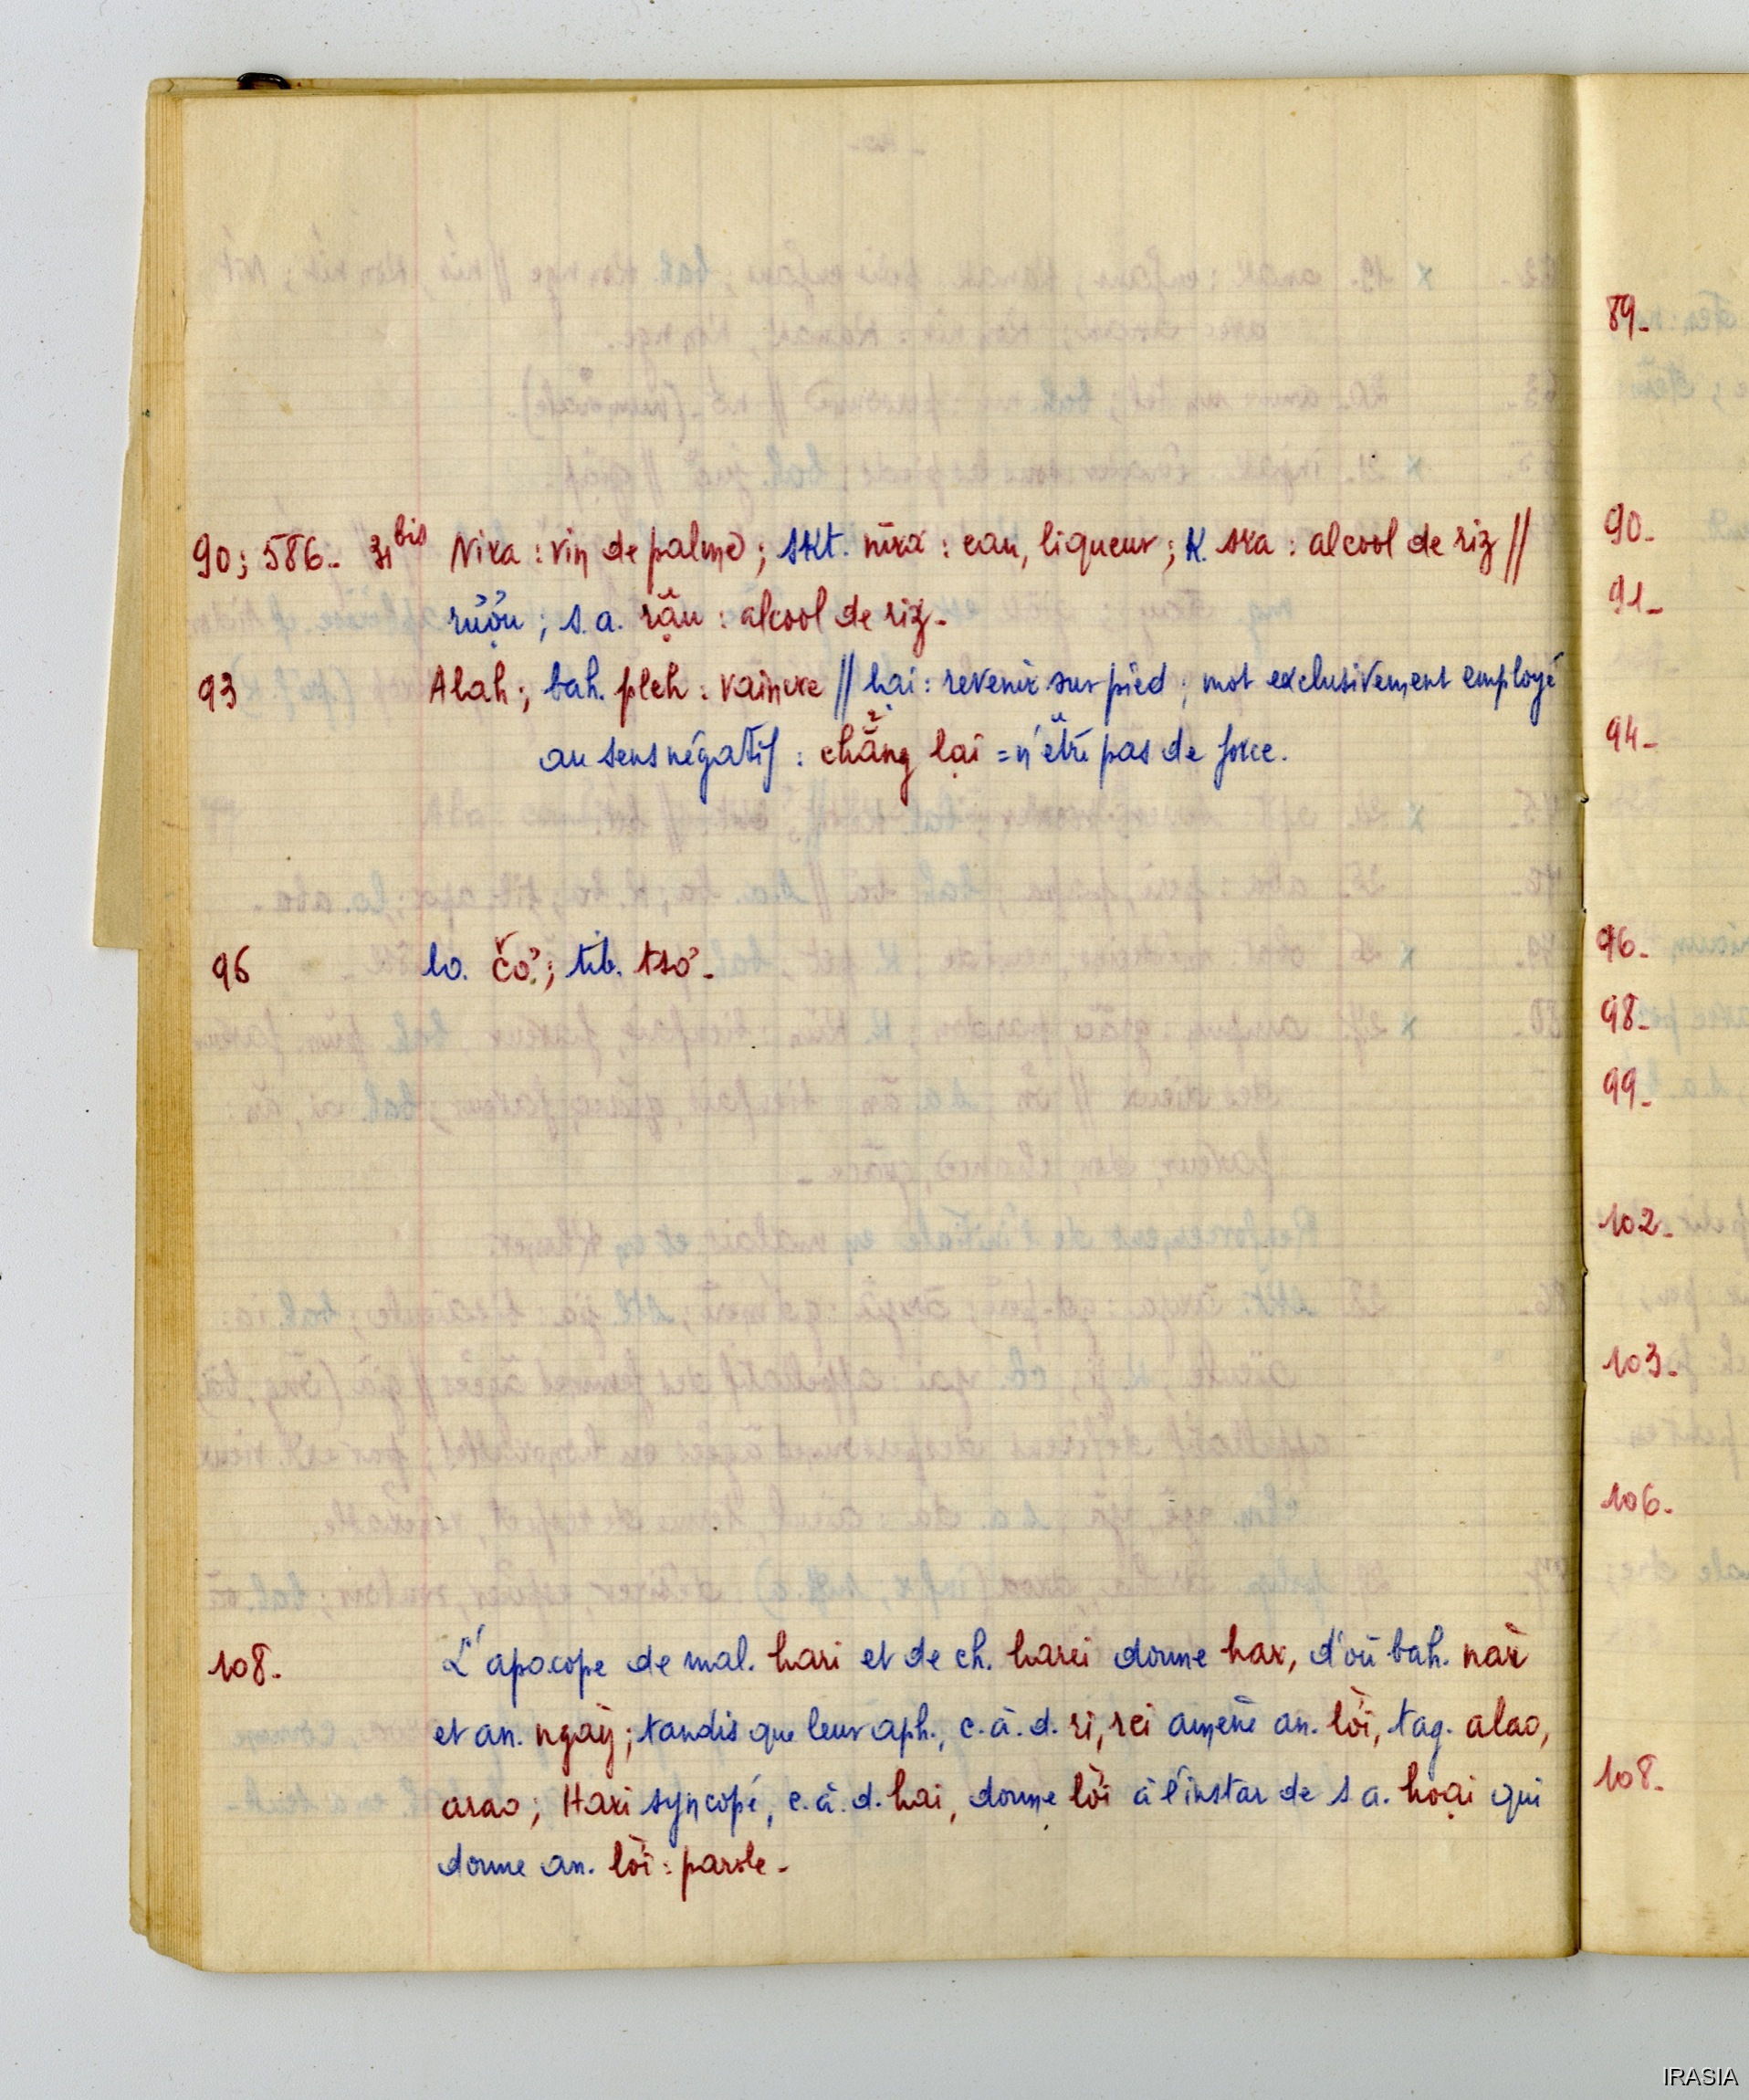 90; 586- 31bis Nira : vin de palme ; skt. nīra : eau, liqueur ; K. sra : alcool de riz //
rượu ; s.a. rặu : alcool de riz -
93 Alah ; bah. pleh : vaincre // lại : revenir sur pied ; mot exclusivement employé
au sens négatif : chẳng lại = n'être pas de force.
96 lo. čơ̆ ; tib. tsơ -
108. L'apocope de mal. hari et de ch. harei donne har, d'où bah. năr
et an. ngày ; tandis que leur aph., c. à. d. ri, rei amène an. lời, tag. alao,
arao ; Hari syncopé, c. à. d. hai, donne lời à l'instar de s a. hoại qui
donne an. lời : parole -
89-
90-
91-
94-
96-
98-
99-
102-
103-
106-
108-
IRASIA